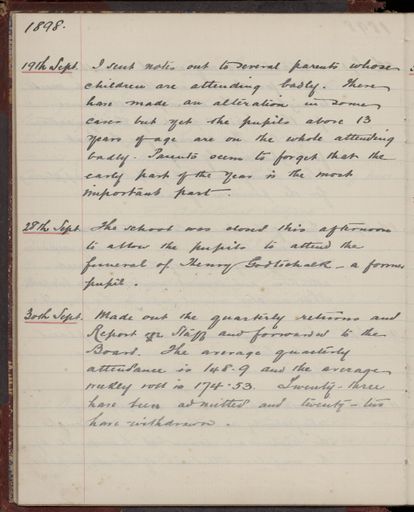 1898.
19th Sept. I sent notes out to several parents whose
children are attending badly. There
have made an alteration in some
cases but yet the pupils above 13
years of age are on the whole attending
badly. Parents seem to forget that the
early part of the year is the most
important part.
28th Sept. The school was closed this afternoon
to allow the pupils to attend the
funeral of Henry Godtschalk - a former
pupil.
30th Sept. Made out the quarterly returns and
Report on Staff and forwarded to the
Board. The average quarterly
attendance is 148.9 and the average
weekly roll is 174.53. Twenty-three
have been admitted and twenty-two
have withdrawn.